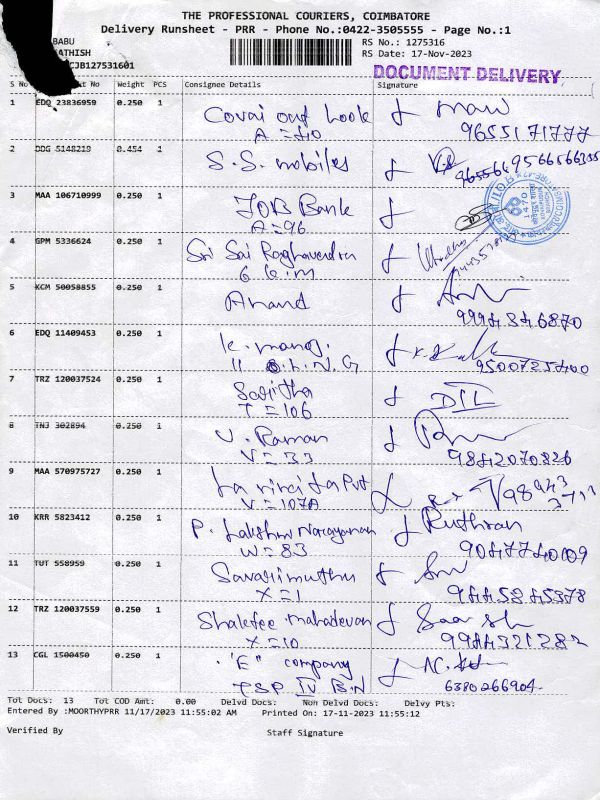 THE PROFESSIONAL COURIERS, COIMBATORE
Delivery Runsheet - PRR - Phone No.:0422-3505555 - Page No.:1
BABU
ATHISH
CJB127531601
RS No.: 1275316
RS Date: 17-Nov-2023
DOCUMENT DELIVERY
S No No Weight PCS Consignee Details Signature
1 EDQ 23836959 0.250 1 Covai out look
A = 40 9655171777
2 DDG 5148219 0.454 1 S.S. mobiles
3 MAA 106710999 0.250 1 IOB Bank
A = 96
4 GPM 5336624 0.250 1 Sri Sai Raghavendra
5 KCM 50058855 0.250 1 Anand
6 EDQ 11409453 0.250 1
9500725400
7 TRZ 120037524 0.250 1 Savitha
T = 106
8 TNJ 302894 0.250 1 V. Raman
V = 33 9842070826
9 MAA 570975727 0.250 1
V = 107A
10 KRR 5823412 0.250 1 P. Lakshmi Narayanan Ruthran
W = 83 9047740109
11 TUT 558959 0.250 1 Savarimuthu
X = 1 9445245378
12 TRZ 120037559 0.250 1 mahadevan
X = 10
13 CGL 1500450 0.250 1 "E" company
TSP IV BN 6380266904
Tot Docs: 13 Tot COD Amt: 0.00 Delvd Docs: Non Delvd Docs: Delvy Pts:
Entered By :MOORTHYPRR 11/17/2023 11:55:02 AM Printed On: 17-11-2023 11:55:12
Verified By Staff Signature